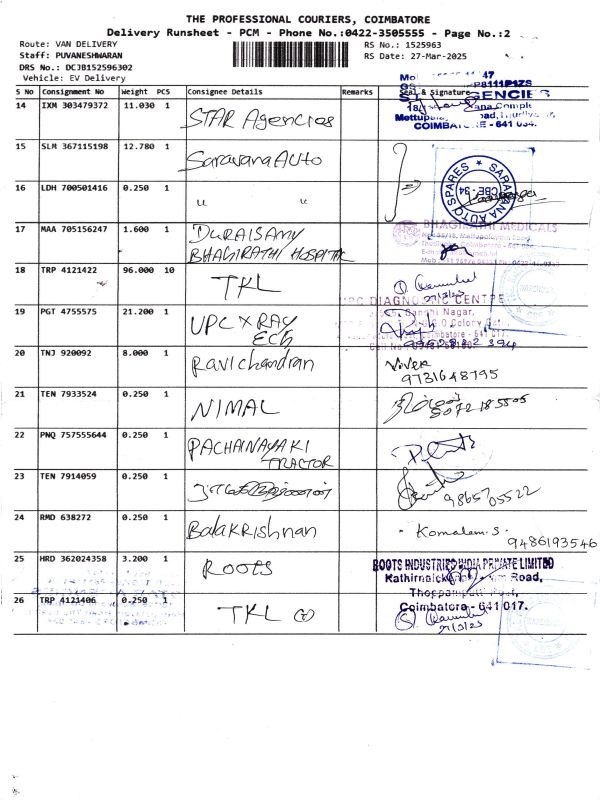 THE PROFESSIONAL COURIERS, COIMBATORE
Delivery Runsheet - PCM - Phone No.:0422-3505555 - Page No.:2
Route: VAN DELIVERY RS No.: 1525963
Staff: PUVANESHWARAN RS Date: 27-Mar-2025
DRS No.: DCJB152596302
Vehicle: EV Delivery
S No Consignment No Weight PCS Consignee Details Remarks Seal & Signature
14 IXM 303479372 11.030 1 STAR Agencies
COIMBATORE - 641 034.
15 SLM 367115198 12.780 1 Saravana Auto
SARAVANA AUTO SPARES CBE-34
16 LDH 700501416 0.250 1 " "
17 MAA 705156247 1.600 1 DURAISAMY
BHAGIRATHI HOSPITAL
BHAGIRATHI MEDICALS
18 TRP 4121422 96.000 10 TKL
27/3/25
19 PGT 4755575 21.200 1 UPC X RAY
ECG
DIAGNOSTIC CENTRE
20 TNJ 920092 8.000 1 Ravichandran Vivek
9731648795
21 TEN 7933524 0.250 1 NIMAL
22 PNQ 757555644 0.250 1 PACHAINAYAKI
TRACTOR
23 TEN 7914059 0.250 1
9865705522
24 RMD 638272 0.250 1 Balakrishnan Komalam.S.
9486193546
25 HRD 362024358 3.200 1 ROOTS
ROOTS INDUSTRIES INDIA PRIVATE LIMITED
Road,
Coimbatore - 641 017.
26 TRP 4121406 0.250 1 TKL
27/3/25